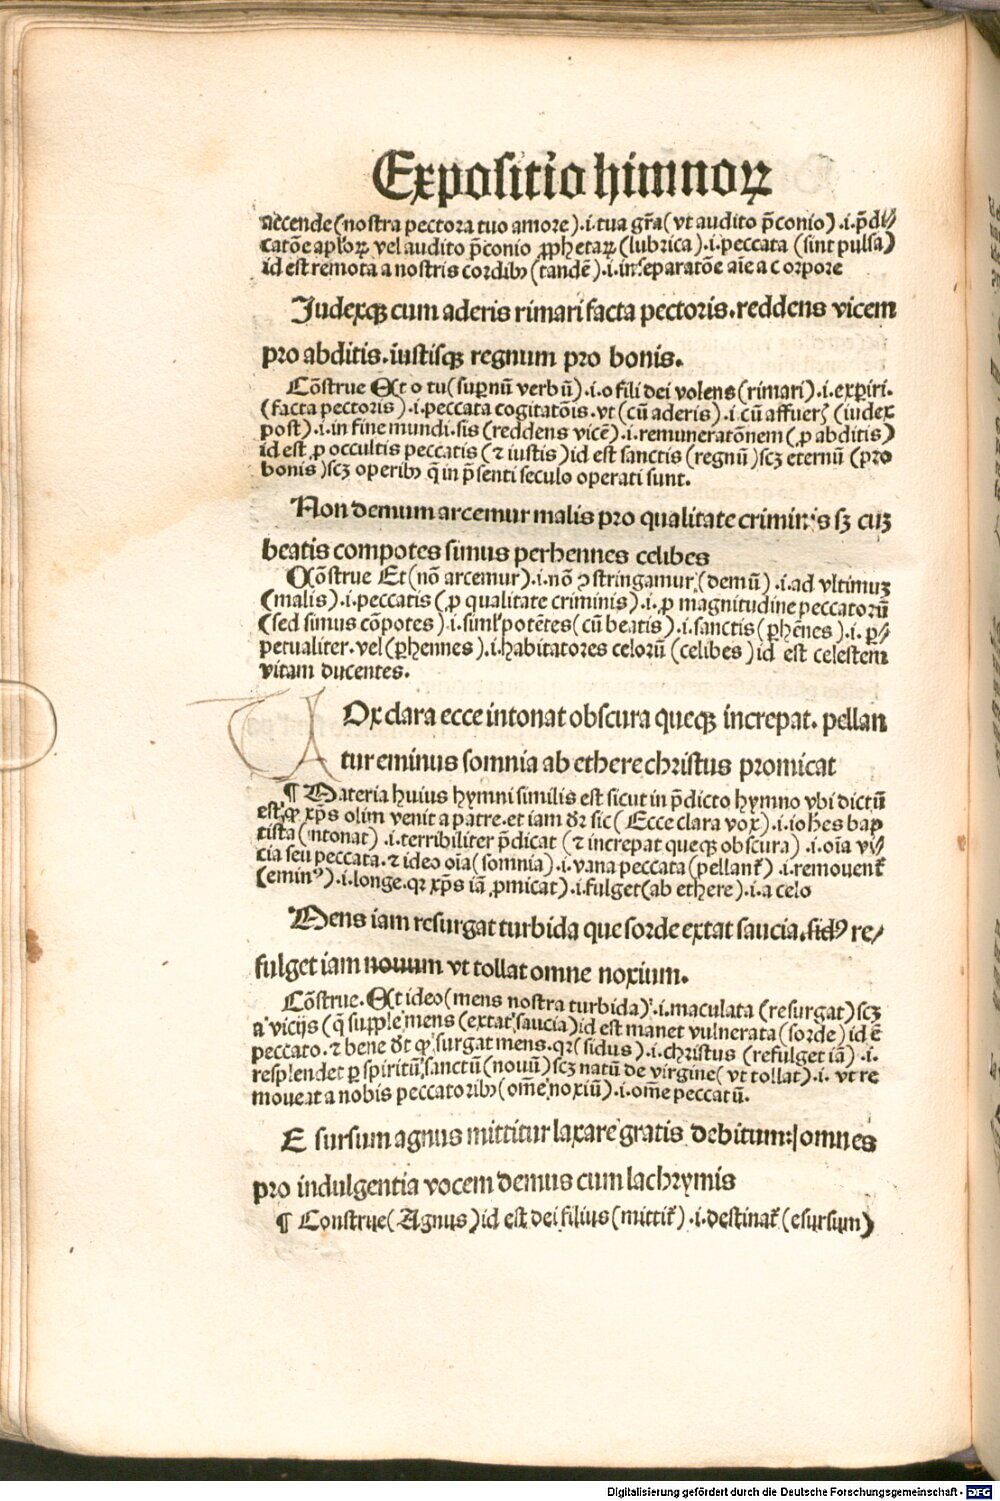 Expositio himnoꝝ
accende (nostra pectora tuo amore) .i. tua gr̄a (vt audito p̄conio) .i. p̄di⸗
catōe apl'oꝝ vel audito p̄conio ꝓphetaꝝ (lubrica) .i. peccata (sint pulsa)
id est remota a nostris cordibꝰ (tandē) .i. in separatōe aīe a corpore
Iudexqꝫ cum aderis rimari facta pectoris. reddens vicem
pro abditis. iustisqꝫ regnum pro bonis.
Cōstrue Et o tu (suꝑnū verbū) .i. o fili dei volens (rimari) .i. exꝑiri.
(facta pectoris) .i. peccata cogitatōis. vt (cū aderis) .i. cū affueris (iudex
post) .i. in fine mundi. sis (reddens vicē) .i. remuneratōnem (ꝓ abditis)
id est ꝓ occultis peccatis (⁊ iustis) id est sanctis (regnū) scꝫ eternū (pro
bonis) scꝫ operibꝰ q̄ in p̄senti seculo operati sunt.
Non demum arcemur malis pro qualitate criminis sꝫ cuꝫ
beatis compotes simus perhennes celibes
Cōstrue Et (nō arcemur) .i. nō ꝯstringamur (demū) .i. ad vltimuꝫ
(malis) .i. peccatis (ꝓ qualitate criminis) .i. ꝓ magnitudine peccatorū
(sed simus cōpotes) .i. simľ potētes (cū beatis) .i. sanctis (ꝑhēnes) .i. ꝑ⸗
petualiter. vel (ꝑhennes) .i. habitatores celorū (celibes) id est celestem
vitam ducentes.
VOx clara ecce intonat obscura queqꝫ increpat. pellan
tur eminus somnia ab ethere christus promicat
¶ Materia huius hymni similis est sicut in p̄dicto hymno vbi dictū
est, ꝙ xp̄s olim venit a patre. et iam dr̄ sic (Ecce clara vox) .i. iohēs bap
tista (intonat) .i. terribiliter p̄dicat (⁊ increpat queqꝫ obscura) .i. oīa vi⸗
cia seu peccata. ⁊ ideo oīa (somnia) .i. vana peccata (pellanť) .i. removenť
(eminꝰ) .i. longe. qꝛ xp̄s iā ꝓmicat) .i. fulget (ab ethere) .i. a celo
Mens iam resurgat turbida que sorde extat saucia. sidꝰ re⸗
fulget iam novum vt tollat omne noxium.
Cōstrue. Et ideo (mens nostra turbida) .i. maculata (resurgat) scꝫ
a vicijs (q̄ supple mens (extat saucia) id est manet vulnerata (sorde) id ē
peccato. ⁊ bene dr̄ ꝙ surgat mens. qꝛ (sidus) .i. christus (refulget iā) .i.
resplendet ꝑ spiritū sanctū (novū) scꝫ natū de virgine (vt tollat) .i. vt re
moveat a nobis peccatoribꝰ (om̄e noxiū) .i. om̄e peccatū.
E sursum agnus mittitur laxare gratis debitum: omnes
pro indulgentia vocem demus cum lachrymis
¶ Construe (Agnus) id est dei filius (mittiť) .i. destinať (e sursum)
Digitalisierung gefördert durch die Deutsche Forschungsgemeinschaft - DFG